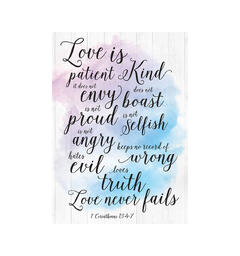 Love is
patient Kind
it does not does not
envy boast
is not is not
proud Selfish
is not
angry keeps no record of
hates wrong
evil loves
truth
Love never fails
1 Corinthians 13:4-7